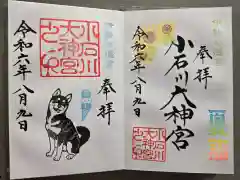 奉拝
小石川大神宮
令和六年八月九日
小石川
大神宮
奉拝
令和六年八月九日
小石川
大神宮